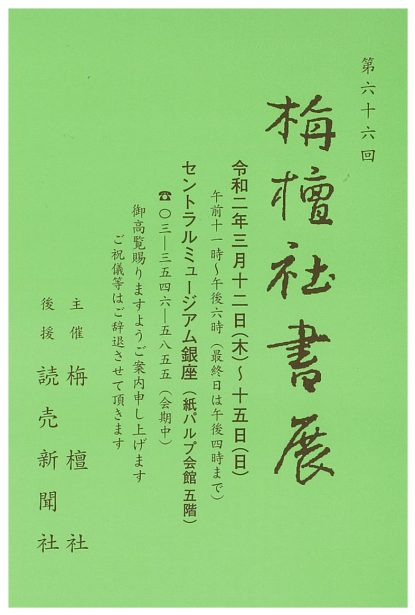 第六十六回
栴檀社書展
令和二年三月十二日(木)〜十五日(日)
午前十一時〜午後六時(最終日は午後四時まで)
セントラルミュージアム銀座(紙パルプ会館 五階)
☎〇三―三五四六―五八五五(会期中)
御高覧賜りますようご案内申し上げます
ご祝儀等はご辞退させて頂きます
主催 栴檀社
後援 読売新聞社